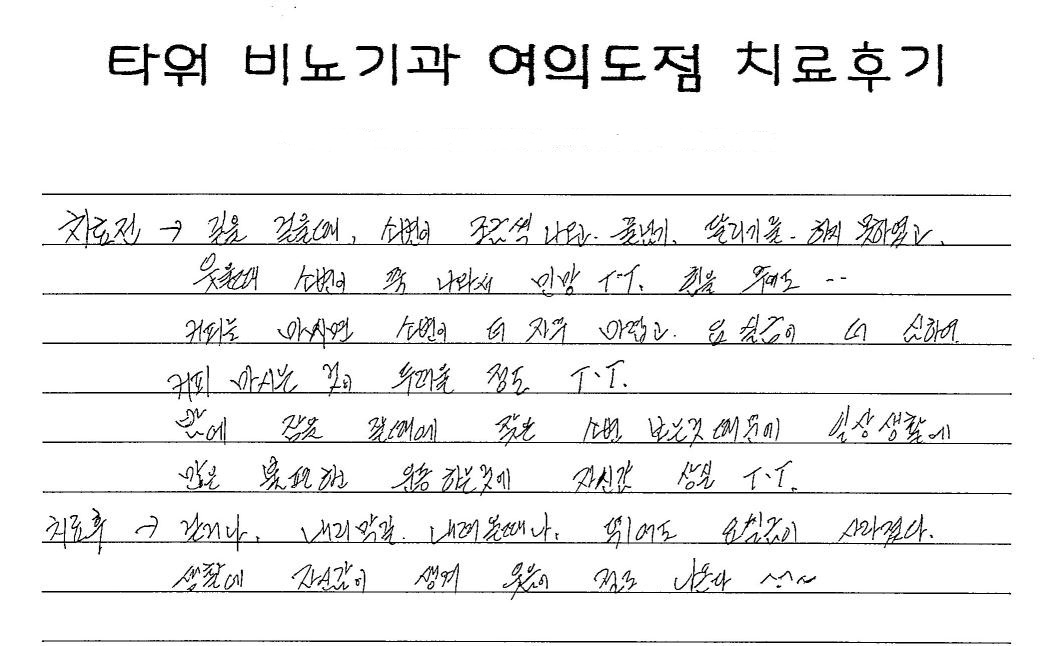 타워 비뇨기과 여의도점 치료후기
치료전 → 길을 걸을때, 소변이 조금씩 나오고. 줄넘기, 달리기를. 하지 못하였고,
웃을때 소변이 쭉 나와서 민망 T.T. 힘을 주어도 --
커피를 마시면 소변이 더 자주 마렵고. 요실금이 더 심하여.
커피 마시는 것이 두려울 정도 T.T.
밤에 잠을 잘때에 잦은 소변 보는것 때문에 일상생활에
많은 불편하고 운동 하는것에 자신감 상실 T.T.
치료후 → 걷거나, 내리막길. 내려올때나, 뛰어도 요실금이 사라졌다.
생활에 자신감이 생겨 웃음이 절로 나온다 ~~